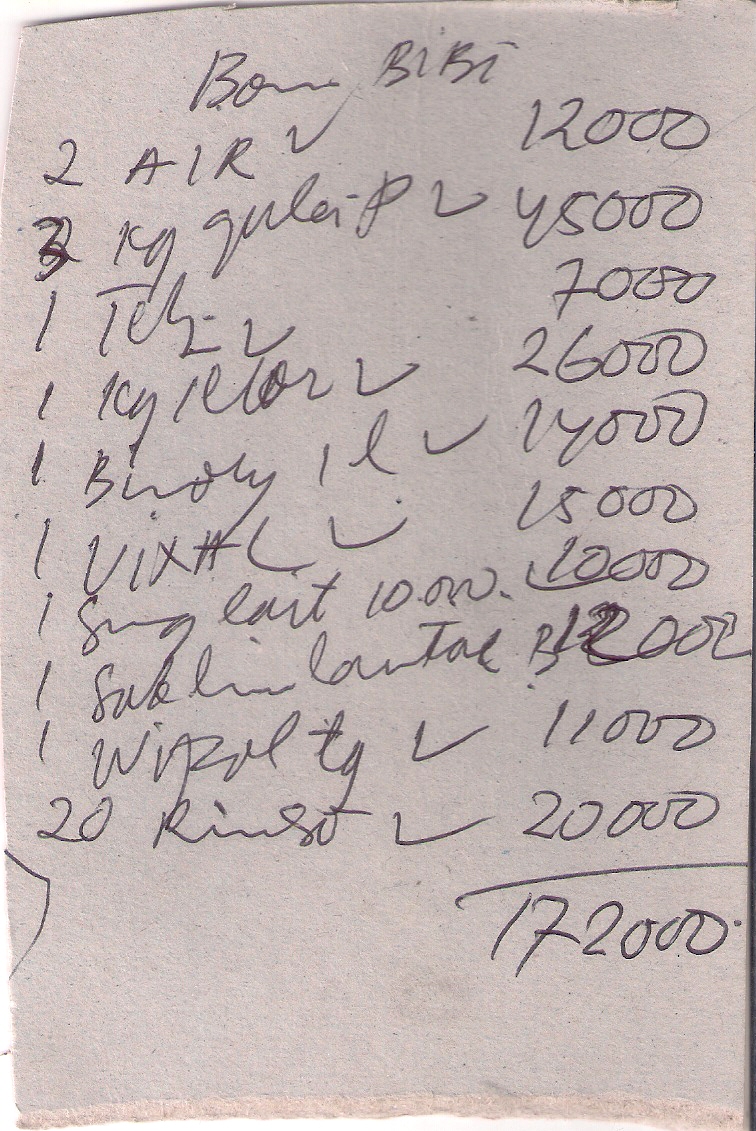 Bon BiBi
2 AIR 12000
3 Kg gula-P 45000
1 Teh 7000
1 Kg telor 26000
1 Bimoly 1 l 14000
1 VIXAL 15000
1 10.000. 10000
1 lantai B 12000
1 WiPol tg 11000
20 Rinso 20000
172000